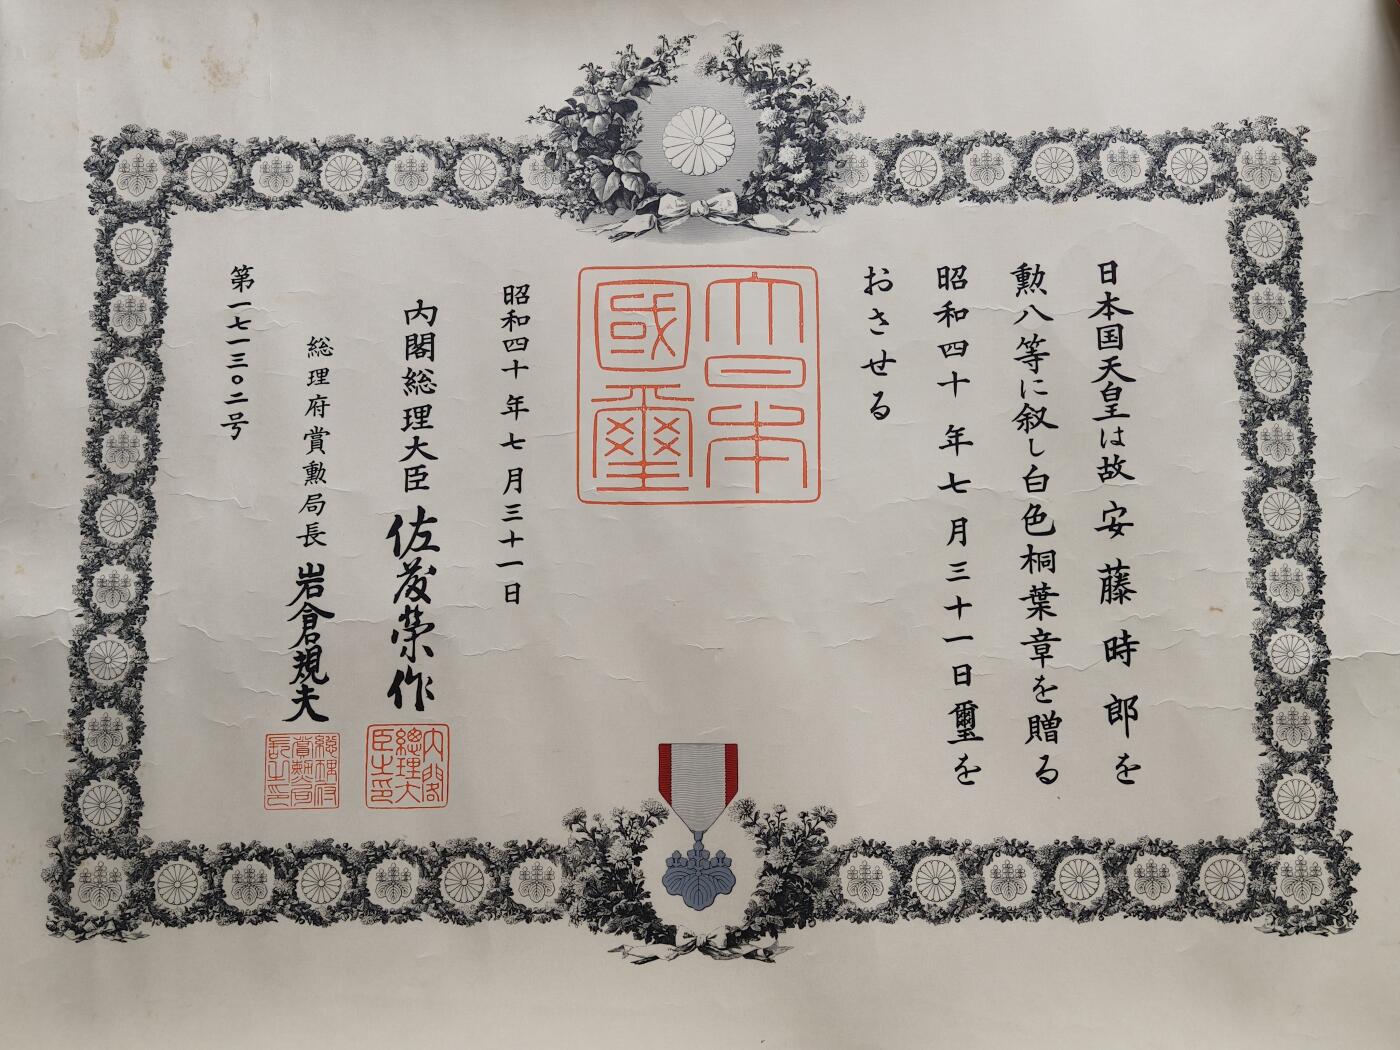 日本国天皇は故安藤時郎を
勲八等に叙し白色桐葉章を贈る
昭和四十年七月三十一日璽を
おさせる
大日本
國璽
昭和四十年七月三十一日
内閣総理大臣 佐藤榮作
内閣
總理大
臣之印
総理府賞勲局長 岩倉規夫
總理府
賞勲局
長之印
第一七一三〇二号